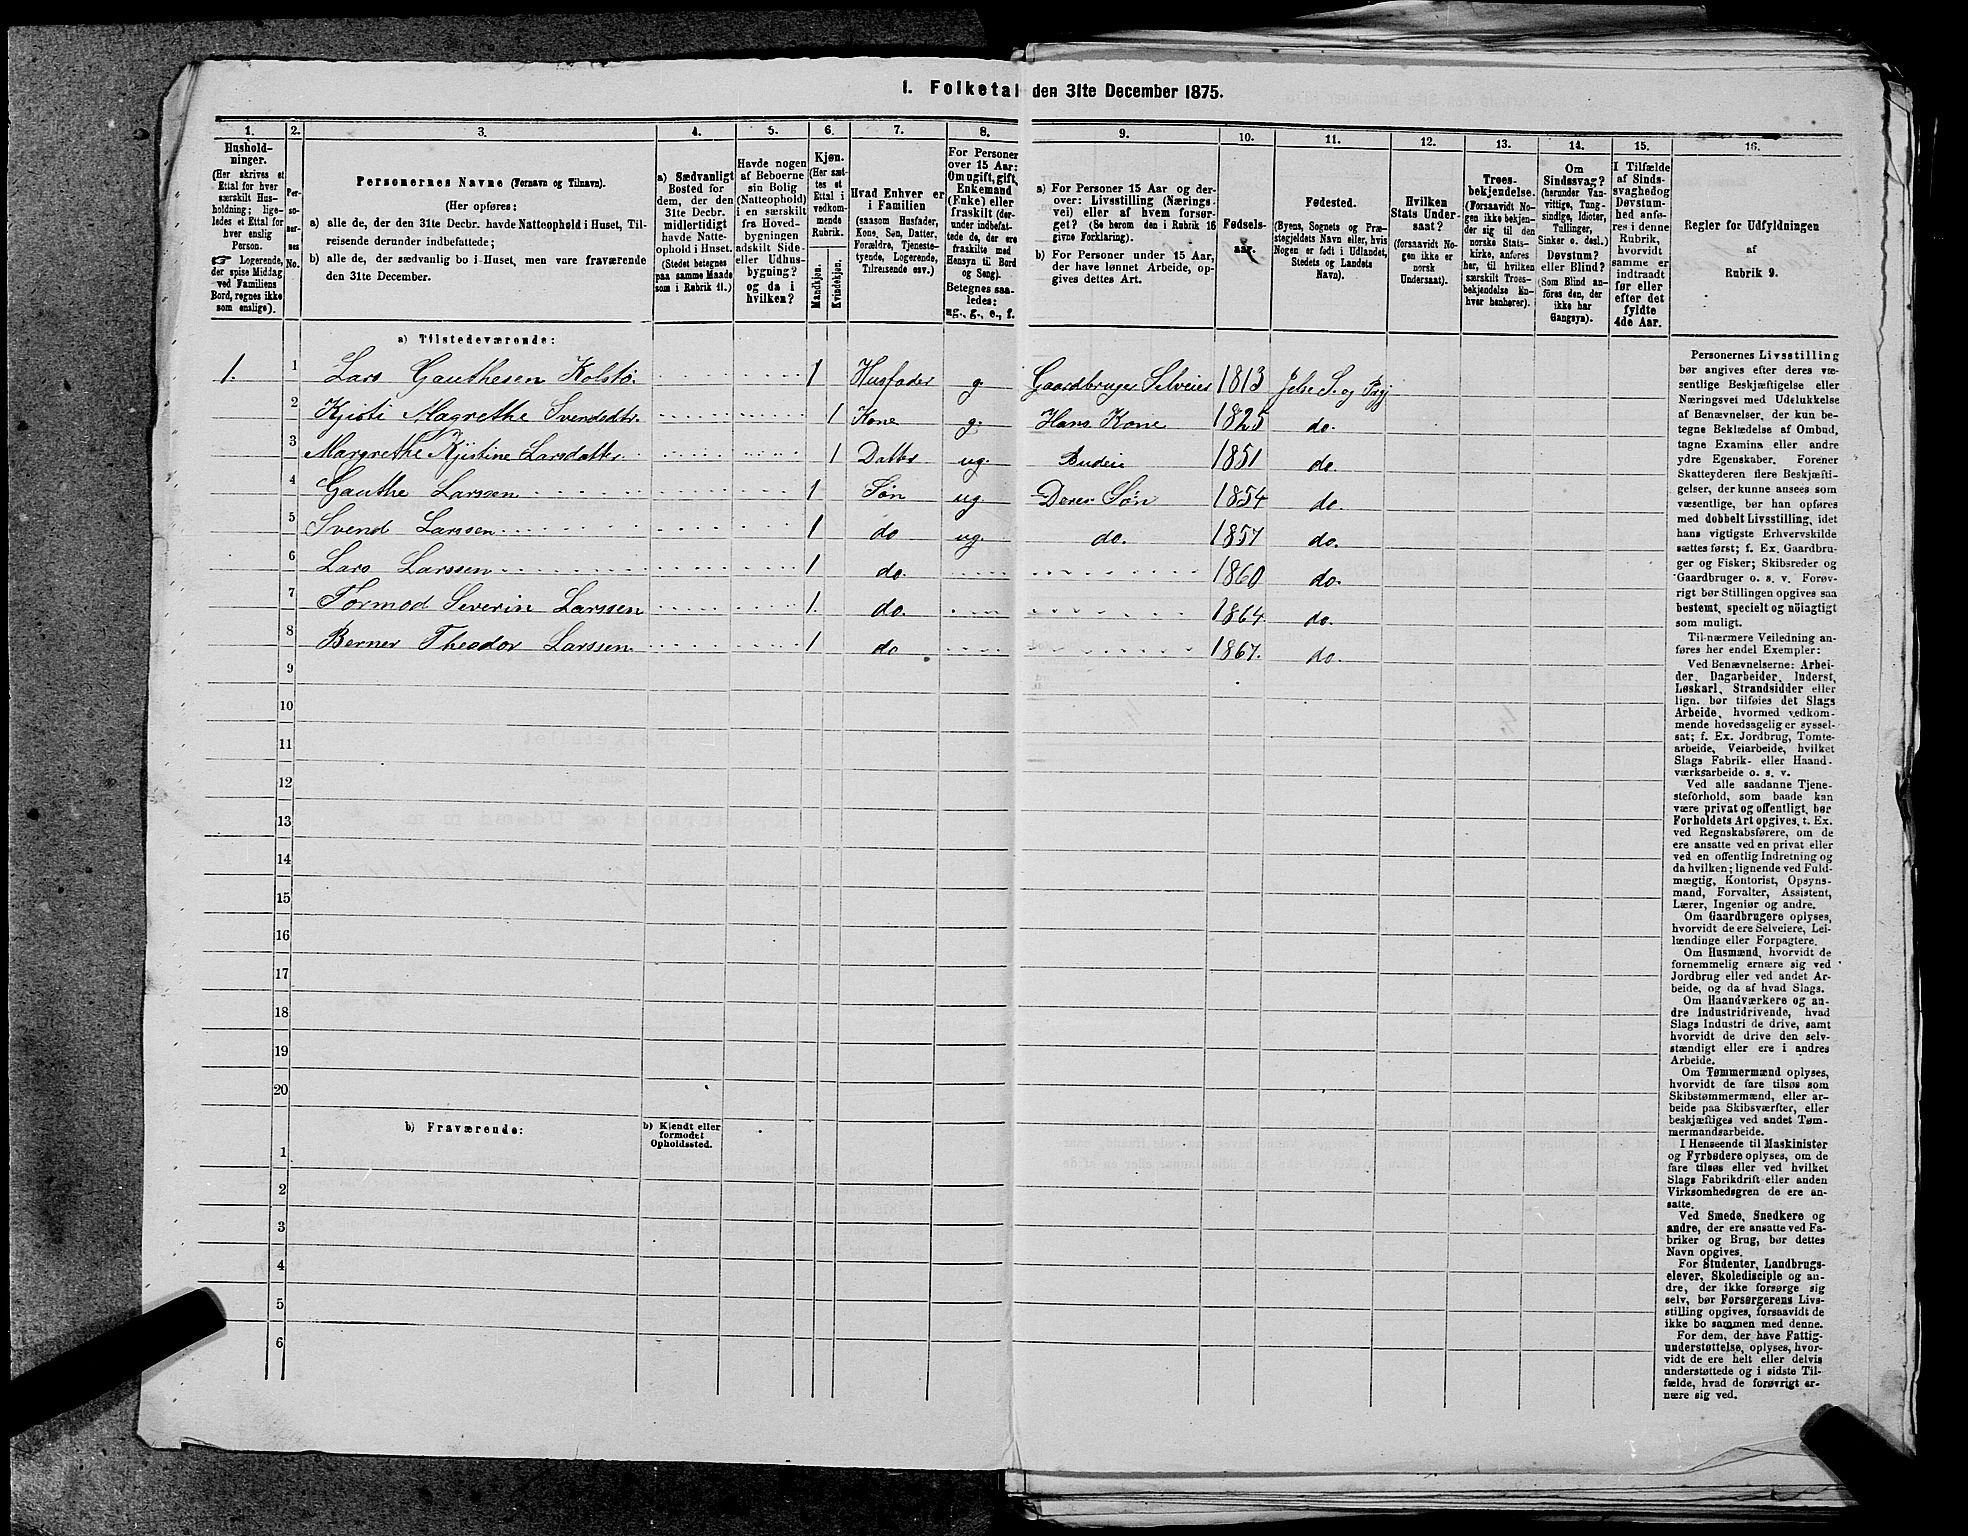 1. Folketal den 31te December 1875.
1. 2. 3. 4. 5. 6. 7. 8. 9. 10. 11. 12. 13. 14. 15. 16.
Hushold-
ninger.
(Her skrives et
Ettal for hver
særskilt Hus-
holdning; lige-
ledes et Ettal for
hver enslig
Person.
☞ Logerende,
der spise Middag
ved Familiens
Bord, regnes ikke
som enslige).
Per-
so-
ner-
nes
No.
Personernes Navne (Fornavn og Tilnavn).
(Her opføres:
a) alle de, der den 31te Decbr. havde Natteophold i Huset, Til-
reisende derunder indbefattede;
b) alle de, der sædvanlig bo i Huset, men vare fraværende
den 31te December.
a) Sædvanligt
Bosted for
dem, der den
31te Decbr.
midlertidigt
havde Natte-
ophold i Huset.
(Stedet betegnes
paa samme Maade
som i Rubrik 11.)
Havde nogen
af Beboerne
sin Bolig
(Natteophold)
i en særskilt
fra Hoved-
bygningen
adskilt Side-
eller Udhus-
bygning?
og da i
hvilken?
Kjøn.
(Her sæt-
tes et
Ettal i
vedkom-
mende
Rubrik.
Mandkjøn.
Kvindekjøn.
Hvad Enhver er
i Familien
(saasom Husfader,
Kone, Søn, Datter,
Forældre, Tjeneste-
tyende, Logerende,
Tilreisende osv.)
For Personer
over 15 Aar:
Om ugift, gift,
Enkemand
(Enke) eller
fraskilt (der-
under indbefat-
tede de, der ere
fraskilte med
Hensyn til Bord
og Seng).
Betegnes saa-
ledes:
ug., g., e., f.
a) For Personer 15 Aar og der-
over: Livsstilling (Nærings-
vei) eller af hvem forsør-
get? (Se herom den i Rubrik 16
givne Forklaring).
b) For Personer under 15 Aar,
der have lønnet Arbeide, op-
gives dettes Art.
Fødsels-
aar.
Fødested.
(Byens, Sognets og Præ-
stegjeldets Navn eller, hvis
Nogen er født i Udlandet,
Stedets og Landets
Navn).
Hvilken
Stats Under-
saat?
(forsaavidt No-
gen ikke er
norsk
Undersaat).
Troes-
bekjendelse.
(Forsaavidt No-
gen ikke bekjen-
der sig til den
norske Stats-
kirke, anføres
her, til hvilken
særskilt Troes-
bekjendelse En-
hver henhører).
Om
Sindssvag?
(herunder Van-
vittige, Tung-
sindige, Idioter,
Tullinger,
Sinker o. desl.)
Døvstum?
eller Blind?
(Som Blind an-
føres den, der
ikke har
Gangsyn).
I Tilfælde
af Sinds-
svaghed og
Døvstum-
hed anfø-
res i denne
Rubrik,
hvorvidt
samme er
indtraadt
før eller
efter det
fyldte
4de Aar.
Regler for Udfyldningen
af
Rubrik 9.
a) Tilstedeværende:
1. 1 Lars Gauthesen Kolstø. 1 Husfader g. Gaardbruger Selveier 1813 Jelse S. og Pgj
2 Kjisti Magrethe Svendsdtr. 1 Kone g. Hans Kone 1825 do.
3 Margrethe Kjistine Larsdatter 1 Datter ug Budeie 1851 do
4 Gauthe Larssen 1 Søn ug. Deres Søn 1854 do.
5 Svend Larssen 1 do ug. do. 1857 do.
6 Lars Larssen 1 do. 1860 do.
7 Tormod Severin Larssen 1. do. 1864 do.
8 Berner Theodor Larssen 1 do 1867. do.
9
10
11
12
13
14
15
16
17
18
19
20
b) Fraværende:
b) Kjendt eller
formodet
Opholdssted.
1
2
3
4
5
6
Personernes Livsstilling
bør angives efter deres væ-
sentlige Beskjæftigelse eller
Næringsvei med Udelukkelse
af Benævnelser, der kun be-
tegne Beklædelse af Ombud,
tagne Examina eller andre
ydre Egenskaber. Forener
Skatteyderen flere Beskjæfti-
gelser, der kunne ansees som
væsentlige, bør han opføres
med dobbelt Livsstilling, idet
hans vigtigste Erhvervskilde
sættes først; f. Ex. Gaardbru-
ger og Fisker; Skibsreder og
Gaardbruger o. s. v. Forøv-
rigt bør Stillingen opgives saa
bestemt, specielt og nöiagtigt
som muligt.
Til nærmere Veiledning an-
føres her endel Exempler:
Ved Benævnelserne: Arbei-
der, Dagarbeider, Inderst,
Løskarl, Strandsidder eller
lign. bør tilføies det Slags
Arbeide, hvormed vedkom-
mende hovedsagelig er syssel-
sat; f. Ex. Jordbrug, Tomte-
arbeide, Veiarbeide, hvilket
Slags Fabrik- eller Haand-
værksarbeide o. s. v.
Ved alle saadanne Tjene-
steforhold, som baade kan
være privat og offentligt, bør
Forholdets Art opgives, t. Ex.
ved Regnskabsførere, om de
ere ansatte ved en privat eller
ved en offentlig Indretning og
da hvilken; lignende ved Fuld-
mægtig, Kontorist, Opsyns-
mand, Forvalter, Assistent,
Lærer, Ingeniør og andre.
Om Gaardbrugere oplyses,
hvorvidt de ere Selveiere, Lei-
lændinge eller Forpagtere.
Om Husmænd, hvorvidt de
fornemmelig ernære sig ved
Jordbrug eller ved andet Ar-
beide, og da af hvad Slags.
Om Haandværkere og an-
dre Industridrivende, hvad
Slags Industri de drive, samt
hvorvidt de drive den selv-
stændigt eller ere i andres
Arbeide.
Om Tømmermænd oplyses,
hvorvidt de fare tilsøs som
Skibstømmermænd, eller ar-
beide paa Skibsværfter, eller
beskjæftiges ved andet Tøm-
mermandsarbeide.
I Henseende til Maskinister
og Fyrbødere oplyses, om de
fare tilsøs eller ved hvilket
Slags Fabrikdrift eller anden
Virksomhedsgren de ere an-
satte.
Ved Smede, Snedkere og
andre, der ere ansatte ved Fa-
briker og Brug, bør dettes
Navn opgives.
For Studenter, Landbrugs-
elever, Skoledisciple og an-
dre, der ikke forsørge sig
selv, bør Forsørgerens Livs-
stilling opgives, forsaavidt de
ikke bo sammen med denne.
For dem, der have Fattig-
understøttelse, oplyses, hvor-
vidt de ere helt eller delvis
understøttede og i sidste Til-
fælde, hvad de forøvrigt er-
nære sig ved.